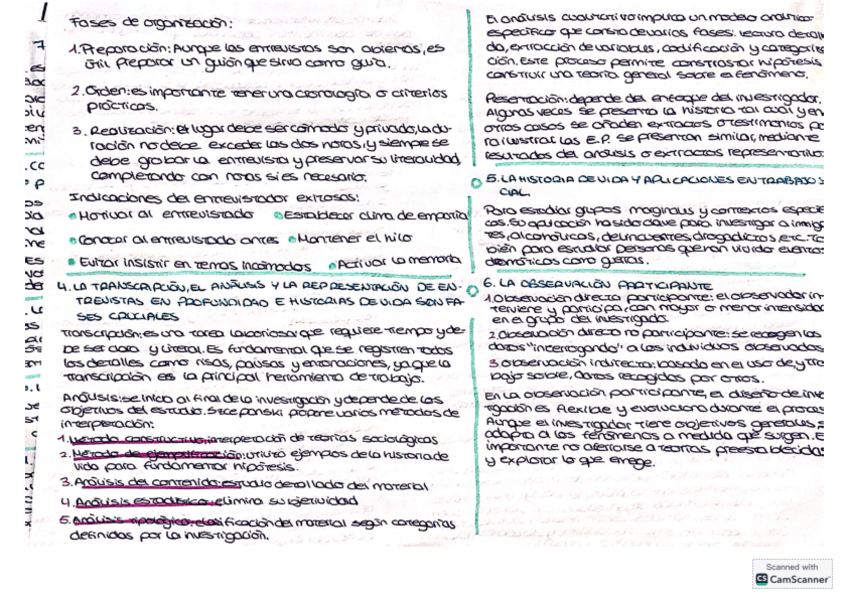 Fases de organización:
1. Preparación: Aunque las entrevistas son abiertas, es
útil preparar un guión que sirva como guía.
2. Orden: es importante tener una cronología o criterios
prácticos.
3. Realización: el lugar debe ser cómodo y privado, la du-
ración no debe exceder las dos horas, y siempre se
debe grabar la entrevista y preservar su literalidad,
completando con notas si es necesario.
Indicaciones del entrevistador exitosas:
Motivar al entrevistado Establecer clima de empatía
Conocer al entrevistado antes Mantener el hilo
Evitar insistir en temas incómodos Activar la memoria
4. LA TRANSCRIPCIÓN, EL ANÁLISIS Y LA REPRESENTACIÓN DE EN-
TREVISTAS EN PROFUNDIDAD E HISTORIAS DE VIDA SON FA-
SES CRUCIALES
Transcripción: es una tarea laboriosa que requiere tiempo y de-
be ser clara y literal. Es fundamental que se registren todos
los detalles como risas, pausas y entonaciones, ya que la
transcripción es la principal herramienta de trabajo.
Análisis: se inicia al final de la investigación y depende de los
objetivos del estudio. Szcepanski propone varios métodos de
interpretación:
1. Método constructivo: interpretación de teorías sociológicas
2. Método de ejemplificación: utiliza ejemplos de la historia de
vida para fundamentar hipótesis.
3. Análisis del contenido: estudio detallado del material
4. Análisis estadístico: elimina subjetividad
5. Análisis tipológico: clasificación del material según categorías
definidas por la investigación.
El análisis cualitativo implica un modelo analítico
específico que consta de varias fases: lectura detalla
da, extracción de variables, codificación y categoriz
ción. Este proceso permite contrastar hipótesis
construir una teoría general sobre el fenómeno.
Presentación: depende del enfoque del investigador.
Algunas veces se presenta la historia tal cual y en
otros casos se añaden extractos o testimonios pa
ra ilustrar. Las E.P. se presentan similar, mediante
resultados del análisis o extractos representativo
5. LA HISTORIA DE VIDA Y APLICACIONES EN TRABAJO S
CIAL
Para estudiar grupos marginales y contextos específ
cos. Su aplicación ha sido clave para investigar a inmig
tes, alcohólicos, delincuentes drogadictos, etc. Ta
bién para estudiar personas que han vivido evento
dramáticos como guerras.
6. LA OBSERVACIÓN PARTICIPANTE
1. Observación directa participante: el observador in-
terviene y participa, con mayor o menor intensidad
en el grupo del investigado.
2. Observación directa no participante: se recogen los
datos "interrogando" a los individuos observados
3. Observación indirecta: basada en el uso de, y tra
bajo sobre, datos recogidos por otros.
En la observación participante, el diseño de inve
tigación es flexible y evoluciona durante el proces
Aunque el investigador tiene objetivos generales, s
adapta a los fenómenos a medida que surgen. E
importante no aferrarse a teorías preestablecidas
y explorar lo que emerge.
Scanned with
CS CamScanner